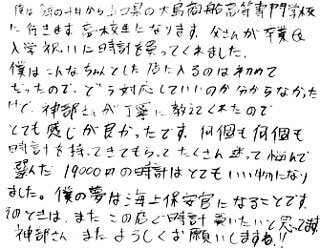 僕は 4月から山口県の大島商船高等専門学校
に行きます。高校生になります。父さんが卒業&
入学祝いに時計を買ってくれました。
僕はこんなちゃんとした店に入るのは初めて
だったので、どう対応していいのか分からなかった
けど、神部さんが丁寧に教えてくれたので
とても感じが良かったです。何個も何個も
時計を持ってきてもらってたくさん迷って悩んで
選んだ 19000円の時計はとてもいい物になり
ました。僕の夢は海上保安官になることです。
そのときは、またこの店で時計 買いたいと思ってます。
神部さん またよろしくお願いしますね!